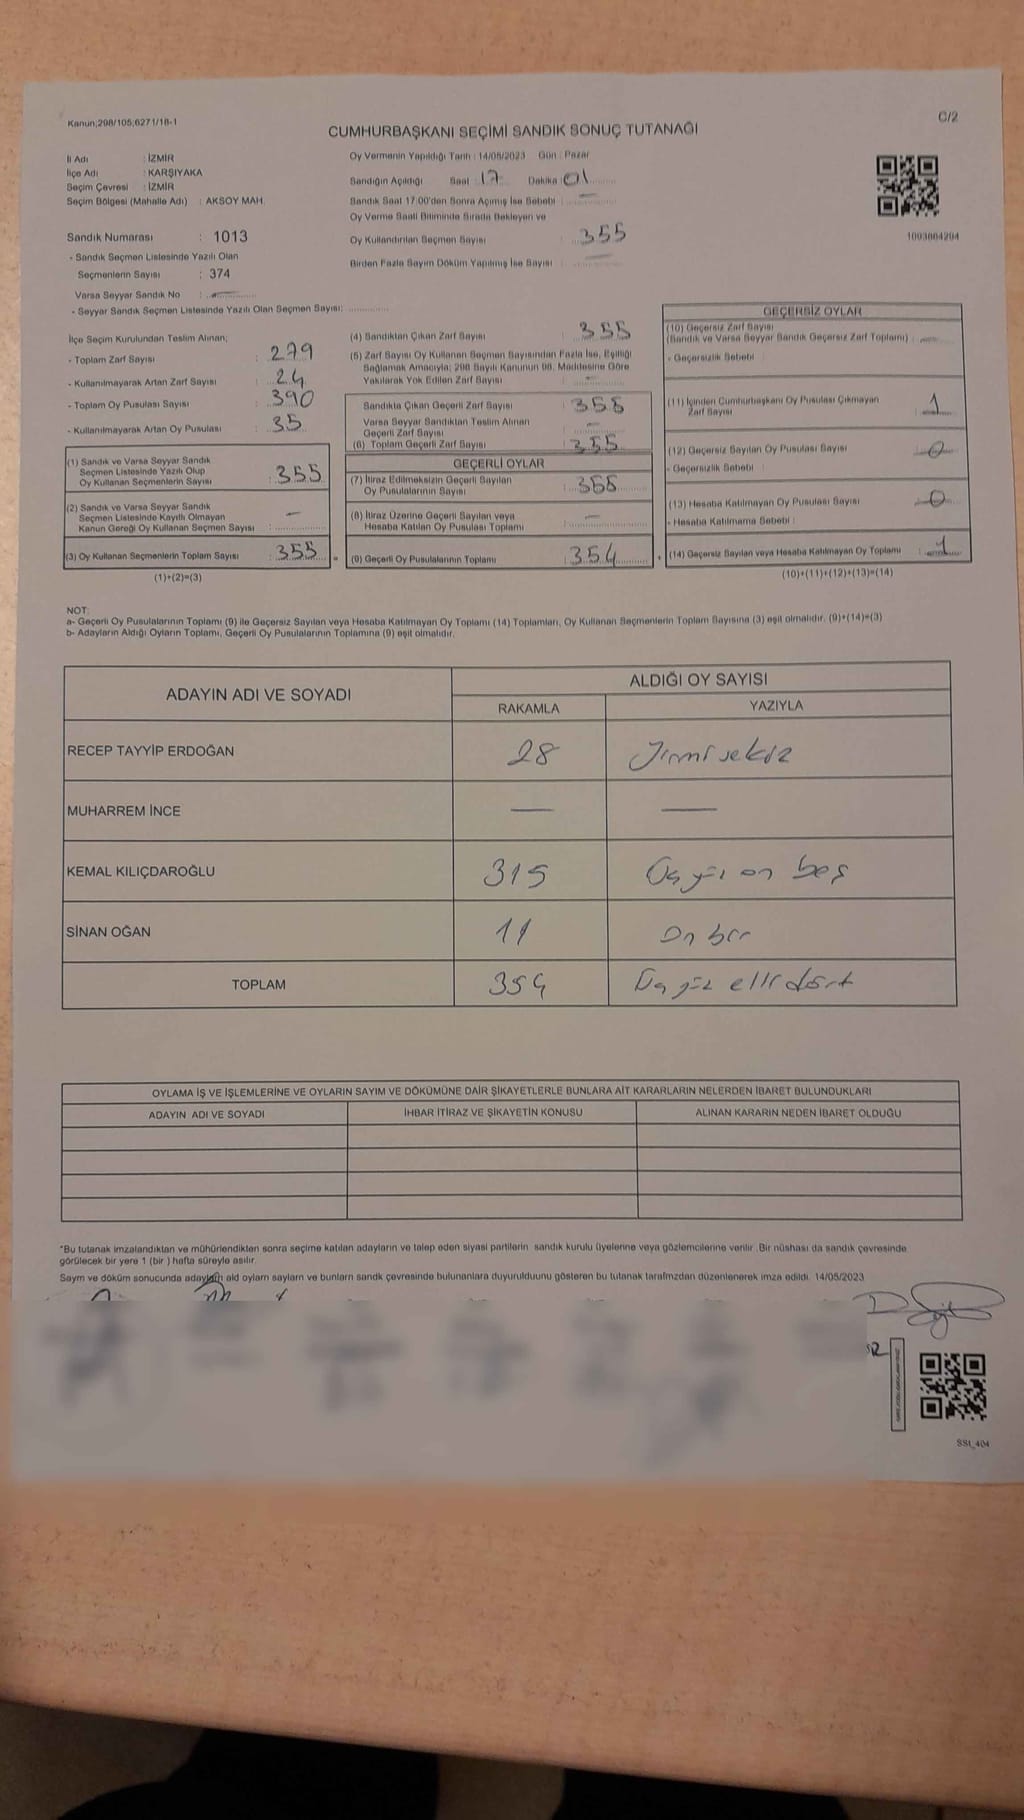 Kanun;298/105;6271/18-1
C/2
CUMHURBAŞKANI SEÇİMİ SANDIK SONUÇ TUTANAĞI
İl Adı : İZMİR
İlçe Adı : KARŞIYAKA
Seçim Çevresi : İZMİR
Seçim Bölgesi (Mahalle Adı) : AKSOY MAH.
Oy Vermenin Yapıldığı Tarih : 14/05/2023 Gün : Pazar
Sandığın Açıldığı Saat 17 Dakika 01
Sandık Saat 17:00'den Sonra Açımış İse Sebebi : —
Oy Verme Saati Bitiminde Sırada Bekleyen ve
Oy Kullandırılan Seçmen Sayısı : 355
Birden Fazla Sayım Döküm Yapılmış İse Sayısı : —
1003804204
Sandık Numarası : 1013
- Sandık Seçmen Listesinde Yazılı Olan
Seçmenlerin Sayısı : 374
Varsa Seyyar Sandık No : —
- Seyyar Sandık Seçmen Listesinde Yazılı Olan Seçmen Sayısı:
İlçe Seçim Kurulundan Teslim Alınan;
- Toplam Zarf Sayısı : 279
- Kullanılmayarak Artan Zarf Sayısı : 24
- Toplam Oy Pusulası Sayısı : 390
- Kullanılmayarak Artan Oy Pusulası : 35
(1) Sandık ve Varsa Seyyar Sandık
Seçmen Listesinde Yazılı Olup
Oy Kullanan Seçmenlerin Sayısı : 355
(2) Sandık ve Varsa Seyyar Sandık
Seçmen Listesinde Kayıtlı Olmayan
Kanun Gereği Oy Kullanan Seçmen Sayısı : —
(3) Oy Kullanan Seçmenlerin Toplam Sayısı : 355
(1)+(2)=(3)
(4) Sandıktan Çıkan Zarf Sayısı : 355
(5) Zarf Sayısı Oy Kullanan Seçmen Sayısından Fazla İse, Eşitliği
Sağlamak Amacıyla; 298 Sayılı Kanunun 98. Maddesine Göre
Yakılarak Yok Edilen Zarf Sayısı : —
Sandıkta Çıkan Geçerli Zarf Sayısı : 355
Varsa Seyyar Sandıktan Teslim Alınan
Geçerli Zarf Sayısı : —
(6) Toplam Geçerli Zarf Sayısı : 355
GEÇERLİ OYLAR
(7) İtiraz Edilmeksizin Geçerli Sayılan
Oy Pusulalarının Sayısı : 355
(8) İtiraz Üzerine Geçerli Sayılan veya
Hesaba Katılan Oy Pusulası Toplamı : —
(9) Geçerli Oy Pusulalarının Toplamı : 354
GEÇERSİZ OYLAR
(10) Geçersiz Zarf Sayısı
(Sandık ve Varsa Seyyar Sandık Geçersiz Zarf Toplamı) : —
- Geçersizlik Sebebi :
(11) İçinden Cumhurbaşkanı Oy Pusulası Çıkmayan
Zarf Sayısı : 1
(12) Geçersiz Sayılan Oy Pusulası Sayısı : 0
- Geçersizlik Sebebi :
(13) Hesaba Katılmayan Oy Pusulası Sayısı : 0
- Hesaba Katılmama Sebebi :
(14) Geçersiz Sayılan veya Hesaba Katılmayan Oy Toplamı : 1
(10)+(11)+(12)+(13)=(14)
NOT:
a- Geçerli Oy Pusulalarının Toplamı (9) ile Geçersiz Sayılan veya Hesaba Katılmayan Oy Toplamı (14) Toplamları, Oy Kullanan Seçmenlerin Toplam Sayısına (3) eşit olmalıdır. (9)+(14)=(3)
b- Adayların Aldığı Oyların Toplamı, Geçerli Oy Pusulalarının Toplamına (9) eşit olmalıdır.
ADAYIN ADI VE SOYADI
ALDIĞI OY SAYISI
RAKAMLA YAZIYLA
RECEP TAYYİP ERDOĞAN 28 Yirmi sekiz
MUHARREM İNCE — —
KEMAL KILIÇDAROĞLU 315 Üç yüz on beş
SİNAN OĞAN 11 On bir
TOPLAM 354 Üç yüz elli dört
OYLAMA İŞ VE İŞLEMLERİNE VE OYLARIN SAYIM VE DÖKÜMÜNE DAİR ŞİKAYETLERLE BUNLARA AİT KARARLARIN NELERDEN İBARET BULUNDUKLARI
ADAYIN ADI VE SOYADI İHBAR İTİRAZ VE ŞİKAYETİN KONUSU ALINAN KARARIN NEDEN İBARET OLDUĞU
*Bu tutanak imzalandıktan ve mühürlendikten sonra seçime katılan adayların ve talep eden siyasi partilerin sandık kurulu üyelerine veya gözlemcilerine verilir. Bir nüshası da sandık çevresinde
görülecek bir yere 1 (bir ) hafta süreyle asılır.
Sayım ve döküm sonucunda adayların ald oyların sayların ve bunların sandk çevresinde bulunanlara duyurulduunu gösteren bu tutanak tarafmzdan düzenlenerek imza edildi. 14/05/2023
SSt_404